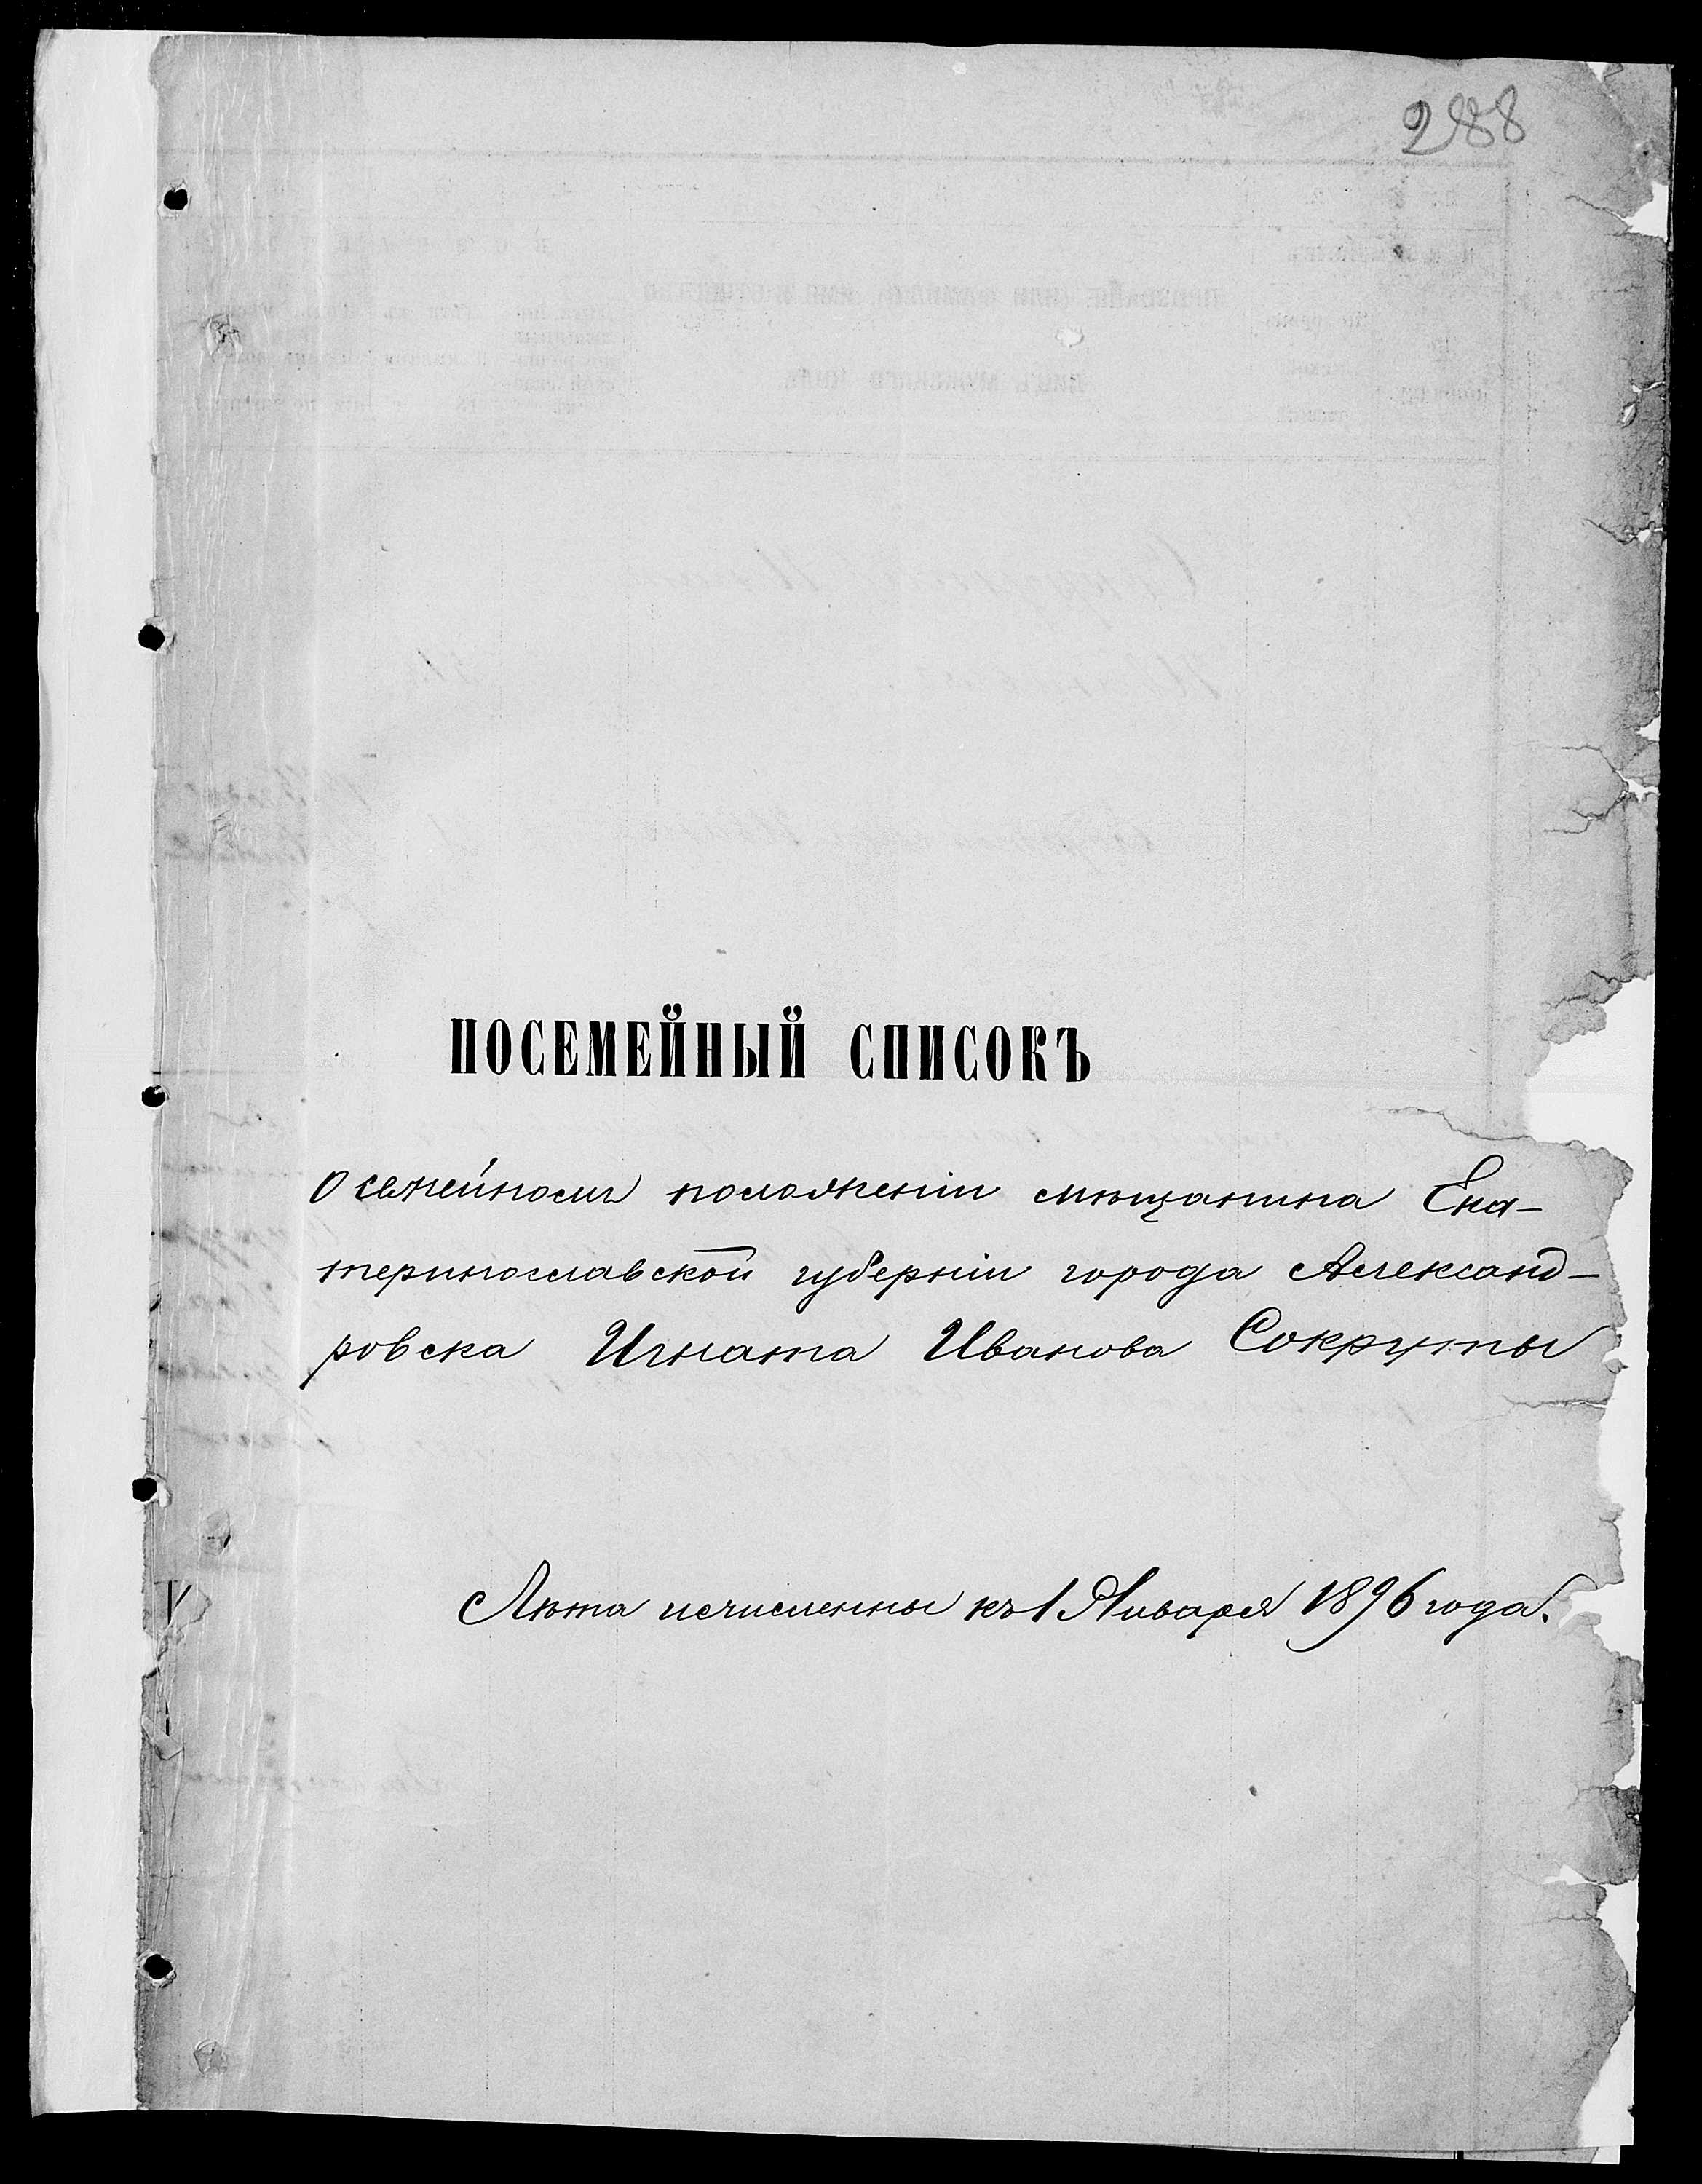 288
ПОСЕМЕЙНЫЙ СПИСОКЪ
О семейномъ положеніи мѣщанина Ека-
теринославской губерніи города Александ-
ровска Игната Иванова Сокруты
Лѣта исчисленны къ 1 Января 1896 года.